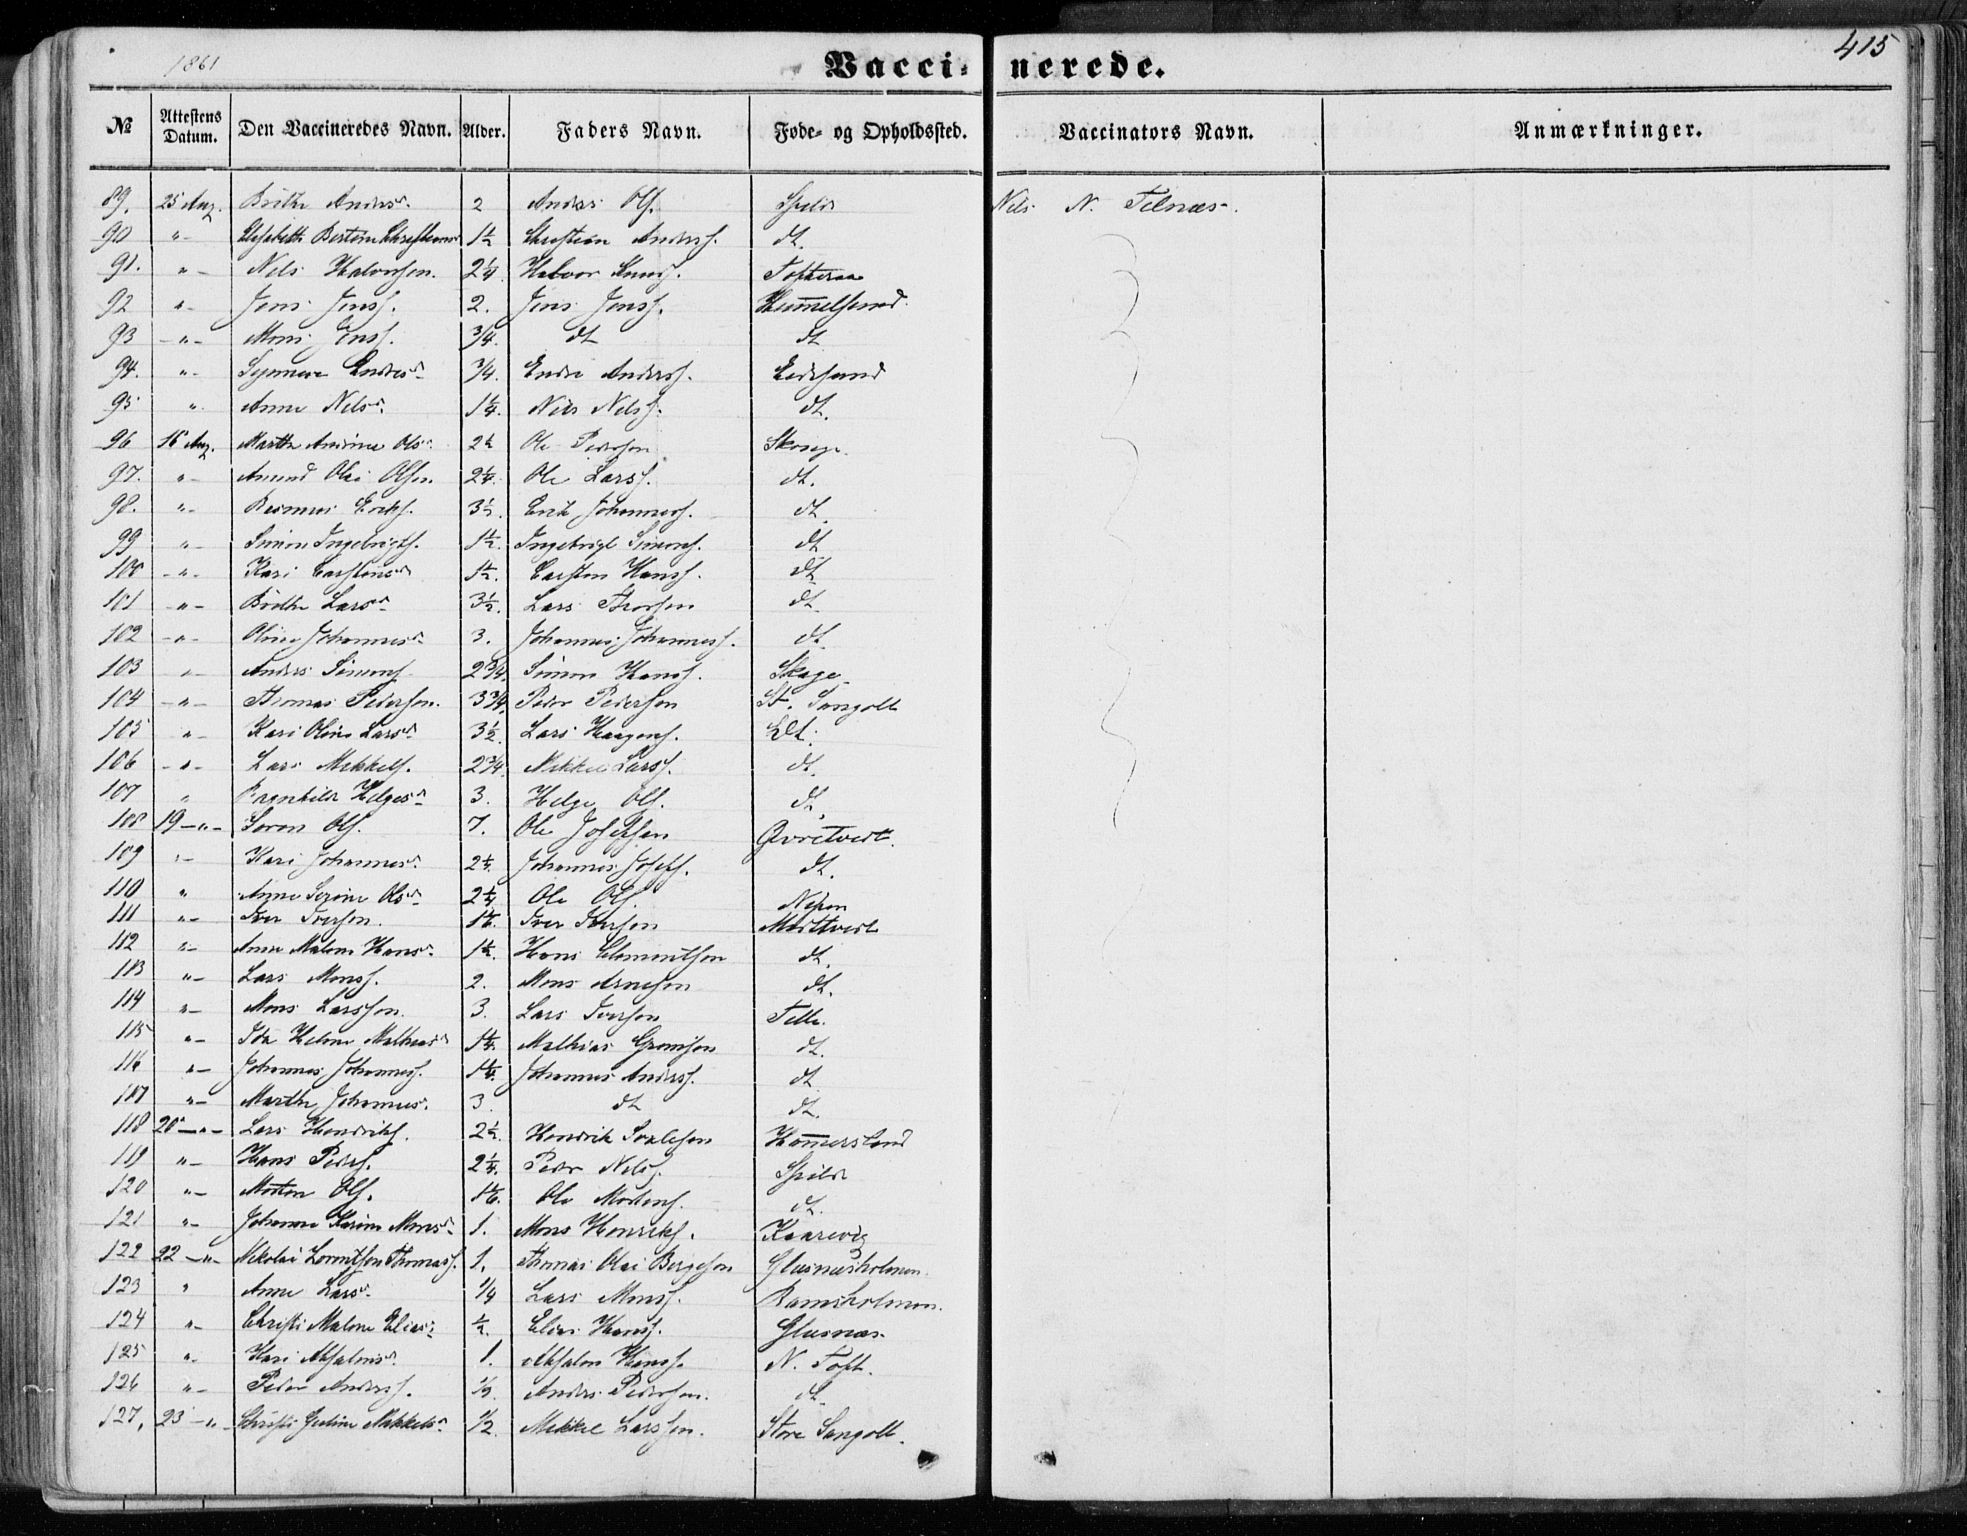 1861
Vaccinerede.
415
№ Attestens Datum. Den Vaccineredes Navn. Alder. Faders Navn. Føde- og Opholdssted. Vaccinators Navn. Anmærkninger.
89. 25 Aug. Brithe Andersd. 2 Anders Ols. Spilde Nils N. Telnæs.
90 " Elisabeth Bertine Christiansd. 1½ Christian Anders. dt.
91. " Nels Halvorsen. 2¼ Halvor Knuds. Tofteraa
92 " Jens Jens. 2. Jens Jens. Hummelsund.
93 " Mons Jens. 3/4. dt dt
94. " Synneve Endresd. 3/4. Endre Anders. Eidesund
95 " Anne Nelsd. 1¼. Nils Nels. dt.
96 16 Aug. Marthe Andrine Olsd. 2½ Ole Pedersen Skoge.
97. " Amund Olai Olsen. 2¼. Ole Lars. dt.
98. " Rasmus Eriks. 3½. Erik Johannes. dt.
99 " Simon Ingebrigts. 1½. Ingebrigt Simons. dt
100 " Kari Carstensd. 1½. Carsten Hans. dt
101 " Brithe Larsd. 3½. Lars Thorsen dt.
102 " Oline Johannesd. 3. Johannes Johanness. dt.
103 " Anders Simons 2¾. Simon Hans. Skage
104 " Thomas Pedersen. 3¾. Peder Pedersen St. Sangolt
105 " Kari Oline Larsd. 3½. Lars Haagens. Elt.
106 " Lars Mikkels. 2¾. Mikkel Lars. dt.
107 " Ragnhild Helgesd. 3. Helge Ols. dt.
108 19 " Søren Ols. 7. Ole Josephsen Qvretvedt.
109 " Kari Johannesd. 2¼. Johannes Joseph. dt.
110 " Anne Serine Olsd. 2¼ Ole Ols. Nipen
111 " Iver Iversen. Iver Iversen Midttvedt
112 " Anne Malene Hansd. 1½. Hans Clementsen dt.
113 " Lars Mons. 2. Mons Arnesen dt.
114 " Mons Larssen. 3. Lars Iversen Telle.
115 " Ida Helene Mathiasd. 1¼. Mathias Gromsen dt.
116 " Johannes Johannes. 1¼. Johannes Anders. dt
117 " Marthe Johannesd. 3. dt dt.
118 20 " Lars Hendriks. 2½. Hendrik Ivalesen Hammersland
119 " Hans Peders. 2¼. Peder Nels. Spilde
120 " Morten Ols. Ole Mortens. dt.
121 " Johanne Karine Monsd. 1. Mons Henriks. Kaarevig
122 22 " Nikolai Lorentsen Thomas. 1. Thomas Olai Børgesen Glesnæsholmen.
123 " Anne Larsd. 1/4 Lars Mons. Ramsholmen.
124 " Christi Malene Eliasd. ½. Elias Hans. Glesnæs.
125 " Kari Absalonsd. 1. Absalon Hans. N. Toft.
126 " Peder Anders. Anders Pedersen. dt
127. 23 " Christi Gurine Mikkelsd. 1/2. Mikkel Larssen. Store Sangolt.